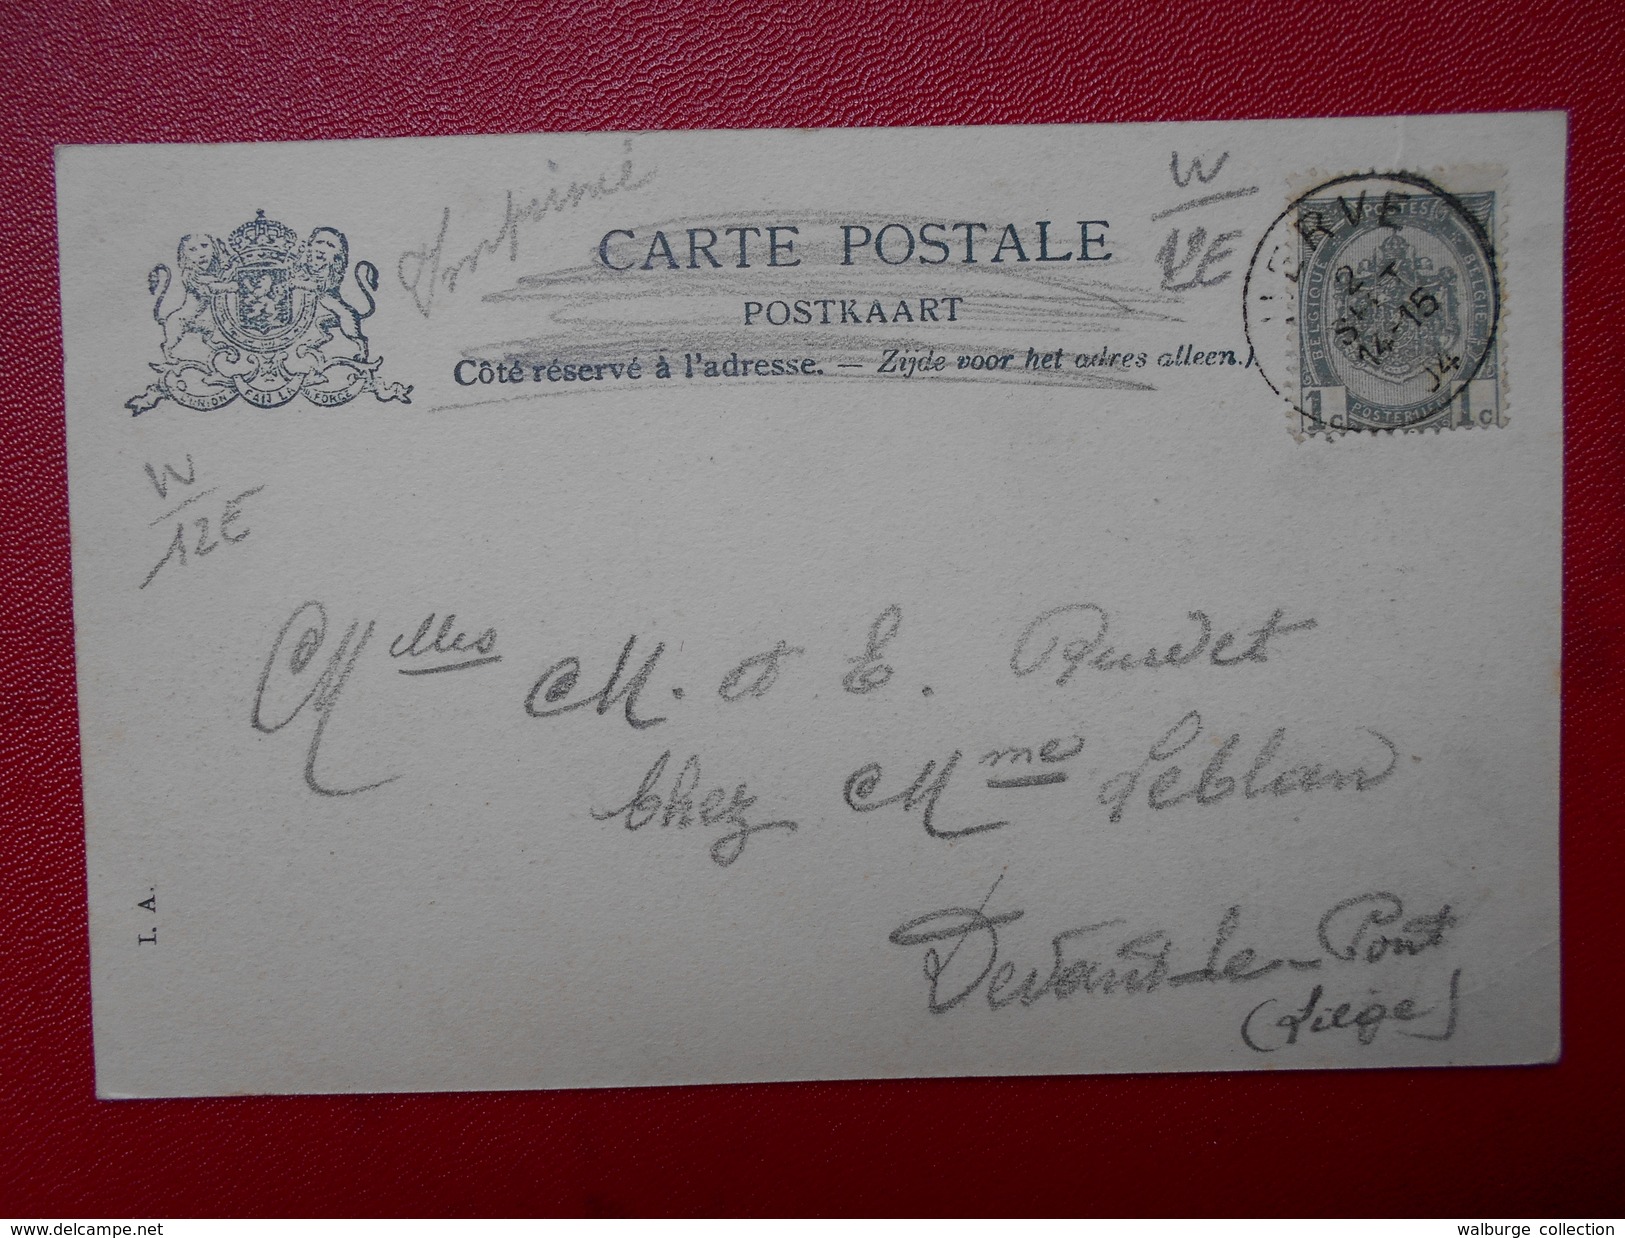 Imprimé
W
12E
CARTE POSTALE
POSTKAART
Côté réservé à l'adresse. — Zijde voor het adres alleen.)
L'UNION FAIT LA FORCE
HERVE
2
SEPT
14-15
04
BELGIQUE
BELGIE
1c
POSTERIJEN
1c
W
12E
Mlles M. et E. Ruwet
Chez Mme Leblanc
Devant-le-Pont
(Liége)
I. A.
www.delcampe.net
walburge collection